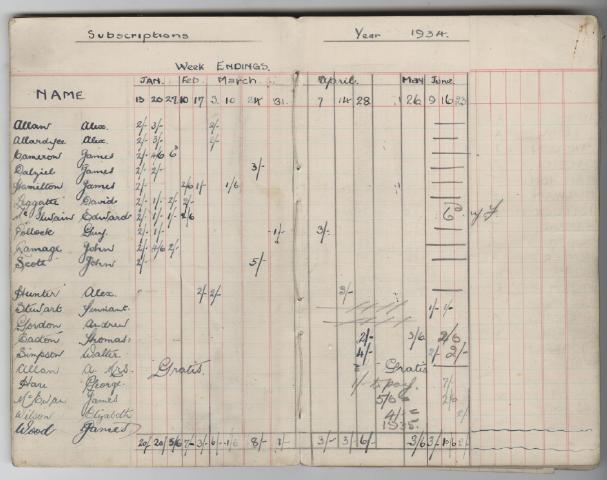 Subscriptions Year 1934.
Week ENDINGS.
JAN. Feb. March April. May June.
NAME
13 20 27 10 17 3 10 24 31. 7 14 28 26 9 16 23
Allan Alex. 2/- 3/- 2/-
Allardyce Alex. 2/- 3/- 2/-
Cameron James 2/- 4/6 6d
Dalziel James 2/- 2/- 3/-
Hamilton James 2/- 2/6 1/- 1/6
Leggatt David 2/- 1/- 2/- 2/-
Mc Swain Edward 2/- 1/- 1/- 2/6 6d
Pollock Guy. 2/- 1/- 1/- 3/-
Ramage John 2/- 4/6 2/-
Scott John 2/- 5/-
Hunter Alex. 2/- 2/- 3/-
Stewart 1/- 1/-
Gordon Andrew
Eadon Thomas. 2/- 3/6 2/6
Simpson Walter. 4/- 2/- 2/-
Allan A Mrs. Gratis Gratis
Hare George 1/- to pay. 7/-
McEwan James 5/0 2/6
Wilson Elizabeth 4/- 2/-
Wood James 1935.
20/- 20/- 5/6 7/- 3/- 6/- 1/6 8/- 1/- 3/- 3/- 6/- 3/6 3/- 10/6